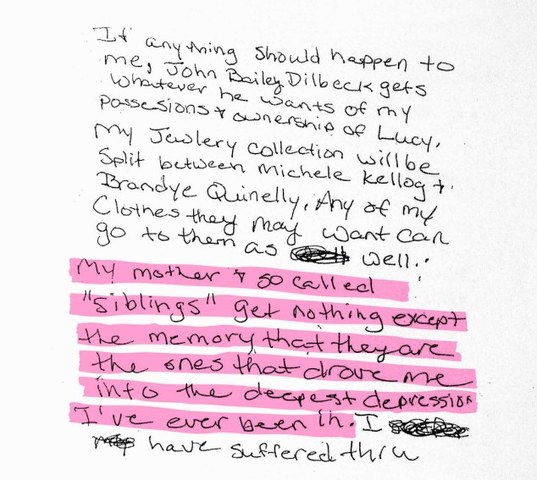 If anything should happen to
me, John Bailey Dilbeck gets
whatever he wants of my
possesions & ownership of Lucy.
My Jewlery collection will be
Split between Michele Kellog &
Brandye Quinelly. Any of my
Clothes they may want can
go to them as well.
My mother & so called
"siblings" get nothing except
the memory that they are
the ones that drove me
into the deepest depression
I've ever been in. I
have suffered thru